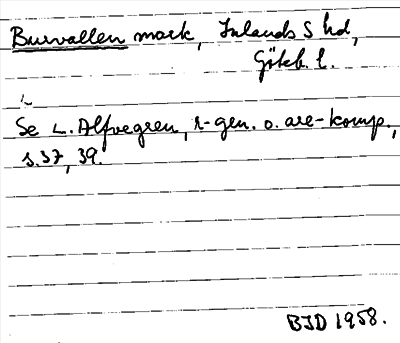 Burvallen mark, Inlands S hd,
Göteb. l.
Se L. Alfvegren, r-gen. o. are-komp.,
s. 37, 39.
BJD 1958.